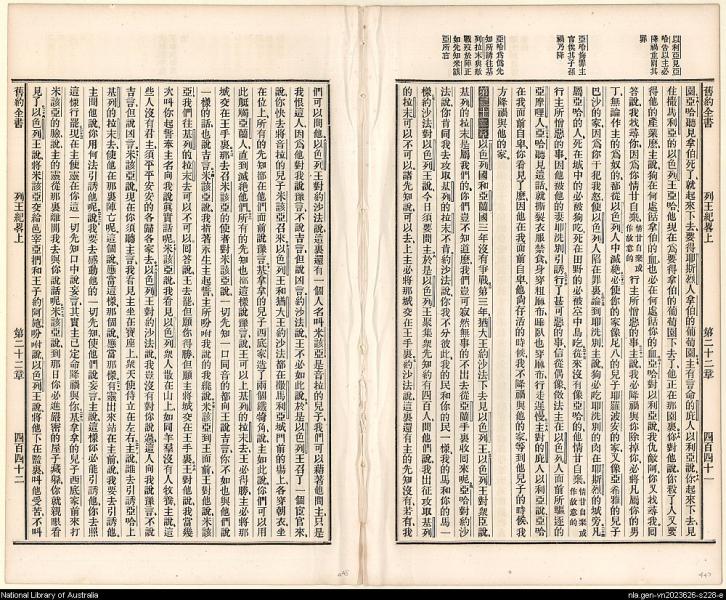 以利亞見亞
哈告以主必
降禍重罰其
罪
亞哈悔罪主
宥俟其子孫
禍乃降
亞哈為偽先
知所誘往基
列拉末與敵
戰歿於陣正
如先知米該
亞所言
園亞哈聽見拿伯死了就起來下去要得耶斯烈人拿伯的葡萄園主有言命的庇人以利亞說你起來下去見
住撒馬利亞的以色列王亞哈他現在為要得拿伯的葡萄園下去了他正在那園裏你對他說你殺了人又要
得他的產業麼主就說狗在何處餂拿伯的血也必在何處餂你的血亞哈對以利亞說我仇敵阿你又來尋我回
答說我找尋你因為你情甘自棄情甘自棄或作故意的行主所憎惡的事主說我必降禍與你除掉你必將凡屬你的男
丁無論作主的為奴的都從以色列人中滅絕必使你的家像尼八的兒子耶羅波安的家又像亞希雅的兒子
巴沙的家因為你干犯我怒使以色列人陷在罪裏論到耶洗別主說狗必吃耶洗別的肉在耶斯烈的城旁凡
屬亞哈的人死在城中的必被狗吃死在田野的必被空中鳥吃從來沒有像亞哈的他情甘自棄情甘自棄或作故意的
行主所憎惡的事因他被他的妻耶洗別引誘行了甚可惡的事信從偶像做法主在以色列人面前所驅逐的
亞摩哩人亞哈聽見這話就撕裂衣服禁食身穿粗麻布睡臥也穿麻布行走遲慢主對的庇人以利亞說亞哈
在我面前自卑你看見了麼因他在我面前自卑他尚存活的時候我不降禍與他的家等到他兒子的時候我
方降禍與他的家
第二十二章以色列國和亞蘭國三年沒有爭戰第三年猶大王約沙法下去見以色列王以色列王對衆臣說
基列的拉末是屬我們的你們豈不知道麼我們豈可寂然無事的不出去從亞蘭手裏收回來呢亞哈對約沙
法說你肯同我去攻取基列的拉末不肯約沙法說你我不分彼此我的民和你的民一樣我的馬和你的馬一
樣約沙法對以色列王說今日須要問主於是以色列王聚集衆先知約有四百人問他們說我出征攻取基列
的拉末可以不可以諸先知說可以上去主必將那城交在王手裏約沙法說這裏還有主的先知沒有若有我
舊約全書 列王紀畧上 第二十二章 四百四十一
們可以問他以色列王對約沙法說這裏還有一個人名叫米該亞是音拉的兒子我們可以藉著他問主只是
我恨這人因為他對我說豫言不說吉言但說凶言約沙法說王不必如此說於是以色列王召了一個宦官來
說你快去將音拉的兒子米該亞召來以色列王和猶大王約沙法都在撒馬利亞城門前的場上各穿朝衣坐
在位上所有的先知都在他們面前說豫言基拿拿的兒子西底家造了兩個鐵犄角說主如此說你們可以用
此觝觸亞蘭人直到滅絕他們所有的先知也都這樣說豫言說王可以上基列的拉末去必得勝主必將那
城交在王手裏那去召米該亞的使者對米該亞說一切先知一口同音的都向王說吉言你不如也與他們說
一樣的話也說吉言米該亞說我指著永生主起誓主所吩咐我說的我纔說米該亞到王面前王對他說米該
亞我們往基列的拉末去可以不可以回答說王去罷但願你得勝但願主將城交在王手裏王對他說我當幾
次叫你起誓奉主名向我說眞實話呢米該亞說我看見以色列衆人散在山上如同羊羣沒有人牧養主說這
些人沒有君主須平平安安的各歸各家去以色列王對約沙法說我沒有對你說過這人向我說豫言不說
吉言但說凶言米該亞說現在你須聽主言我看見主坐在寶座上衆天使侍立在左右主說誰去引誘亞哈上
基列的拉末去使他在那裏陣亡呢這個說應當這樣那個說應當那樣有靈出來站在主前說我要去引誘他
主問他說你用何法引誘他呢說我要去感動他的一切先知使他們說妄言主說這樣你必能引誘他你去照
這樣行罷現在主使靈在你一切先知口中說妄言其實主已定命降禍與你基拿拿的兒子西底家前來打
米該亞的臉說主的靈從那裏離開我去與你說話呢米該亞說到那日你必進嚴密的屋子藏躲你就親眼看
見了以色列王說將米該亞交給邑宰亞捫和王子約阿施吩咐說以色列王說將他下在監裏叫他受苦不叫
舊約全書 列王紀畧上 第二十二章 四百四十二
National Library of Australia
nla.gen-vn2023626-s228-e